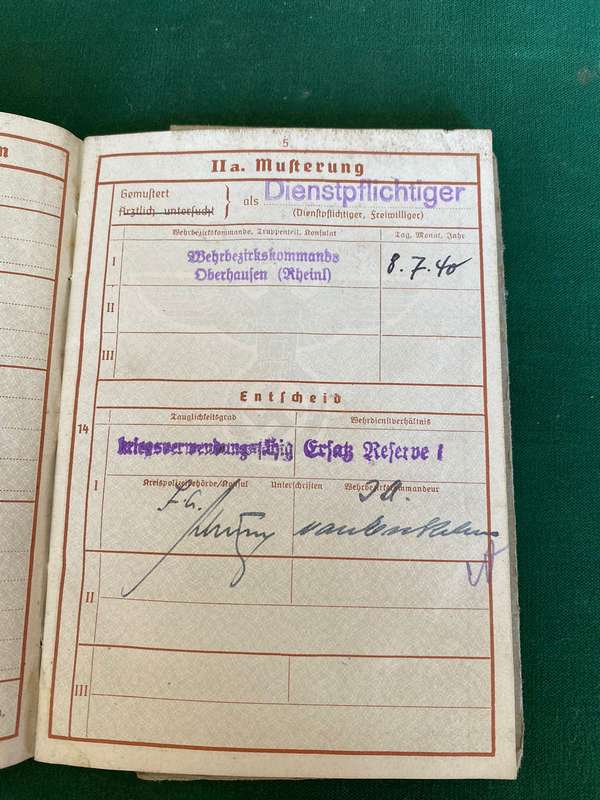 n
5
IIa. Musterung
Gemustert
Ärztlich untersucht
als Dienstpflichtiger
(Dienstpflichtiger, Freiwilliger)
Wehrbezirkskommando, Truppenteil, Konsulat
Tag, Monat, Jahr
I
Wehrbezirkskommando
Oberhausen (Rheinl)
8. 7. 40
II
III
Entscheid
14
Tauglichkeitsgrad
Wehrdienstverhältnis
kriegsverwendungsfähig
Ersatz Reserve I
I
Kreispolizeibehörde/Konsul
Unterschriften
Wehrbezirkskommandeur
II
III